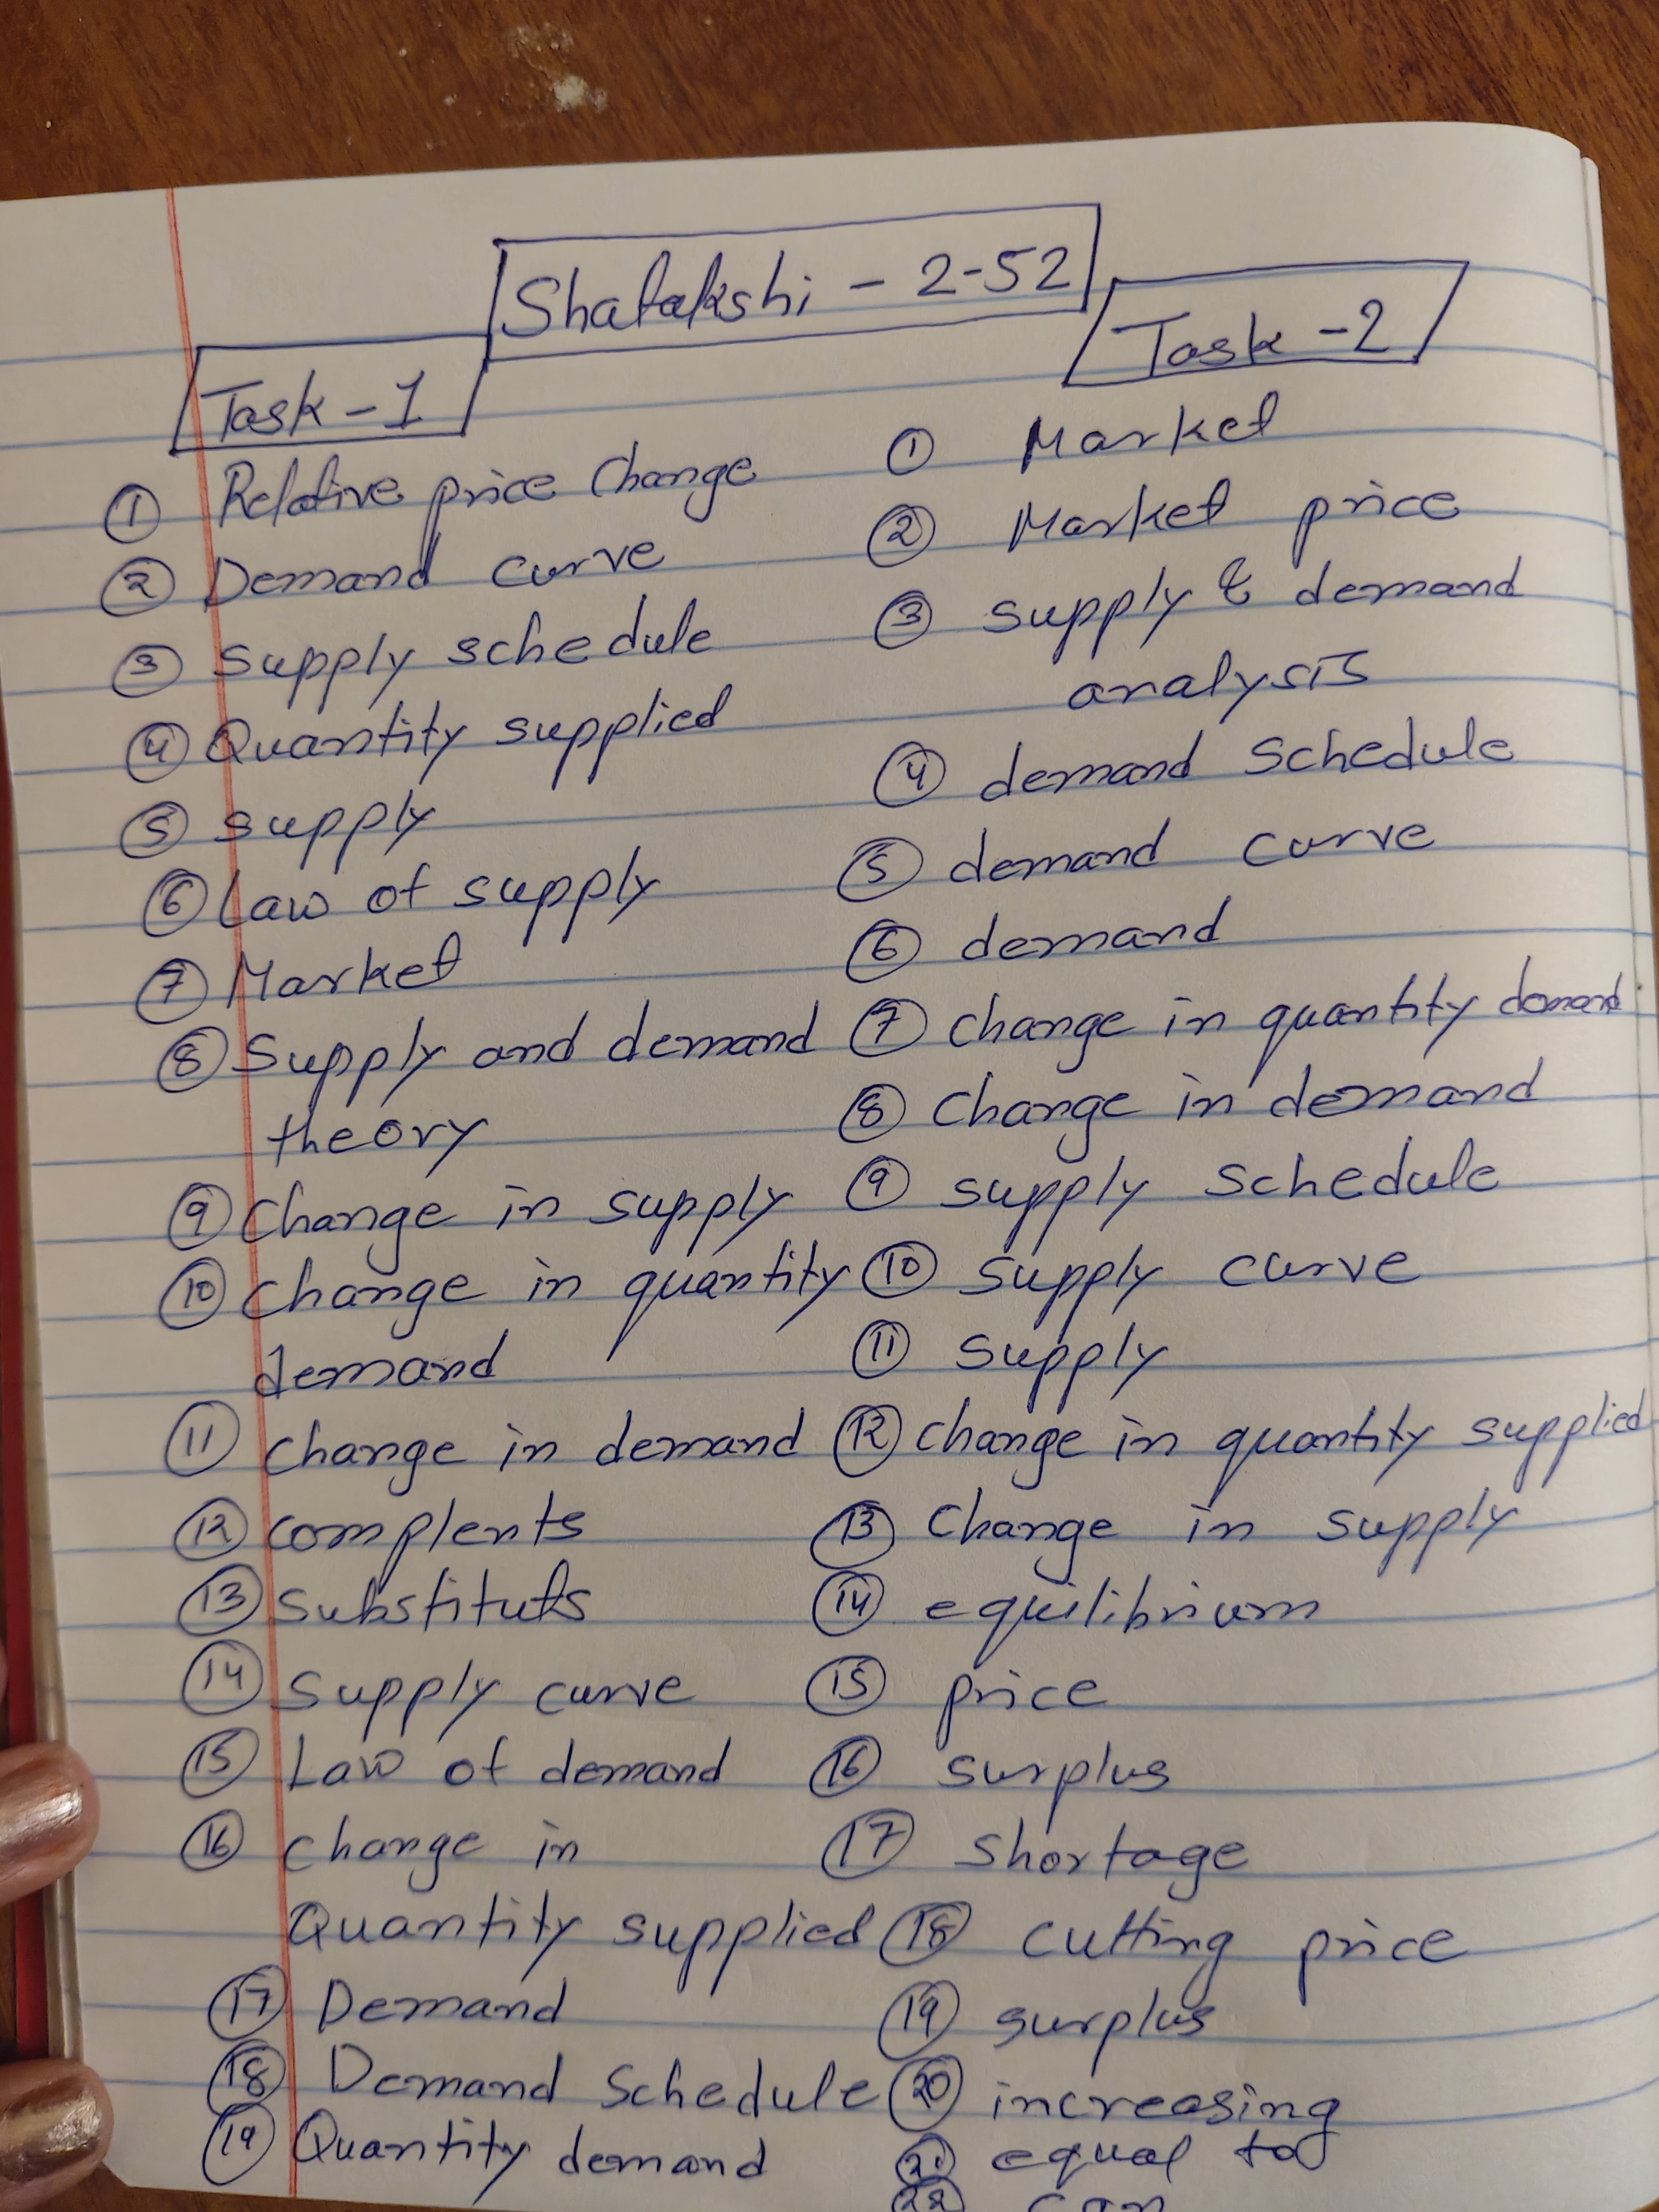 Shatakshi - 2-52
Task - 1
① Relative price change
② Demand curve
③ supply schedule
④ Quantity supplied
⑤ supply
⑥ Law of supply
⑦ Market
⑧ Supply and demand
theory
⑨ change in supply
⑩ change in quantity
demand
⑪ change in demand
⑫ complents
⑬ substituts
⑭ supply curve
⑮ Law of demand
⑯ change in
Quantity supplied
⑰ Demand
⑱ Demand Schedule
⑲ Quantity demand
Task - 2
① Market
② Market price
③ supply & demand
analysis
④ demand schedule
⑤ demand curve
⑥ demand
⑦ change in quantity demand
⑧ change in demand
⑨ supply schedule
⑩ supply curve
⑪ supply
⑫ change in quantity supplied
⑬ change in supply
⑭ equilibrium
⑮ price
⑯ surplus
⑰ shortage
⑱ cutting price
⑲ surplus
⑳ increasing
㉑ equal to
㉒ can